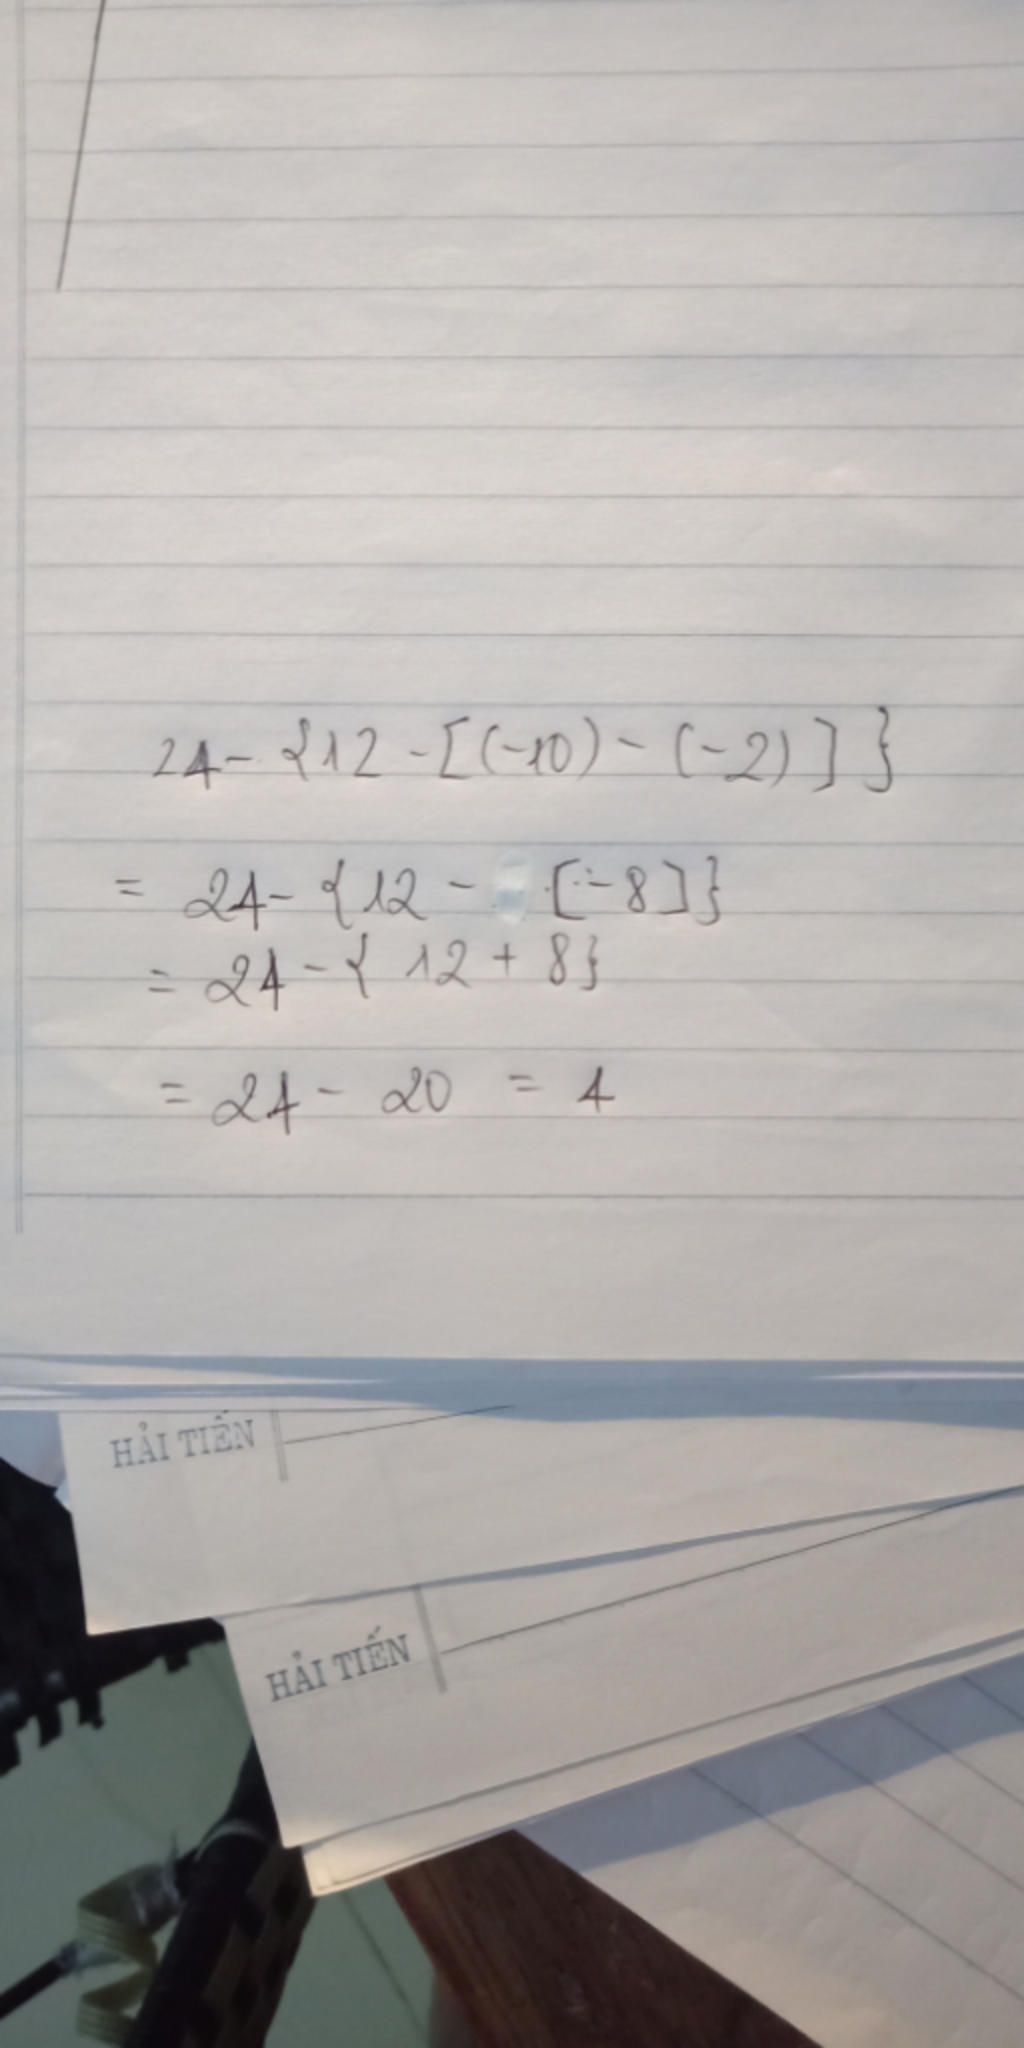 24 - {12 - [(-10) - (-2)]}
= 24 - {12 - [-8]}
= 24 - {12 + 8}
= 24 - 20 = 4
HẢI TIẾN
HẢI TIẾN